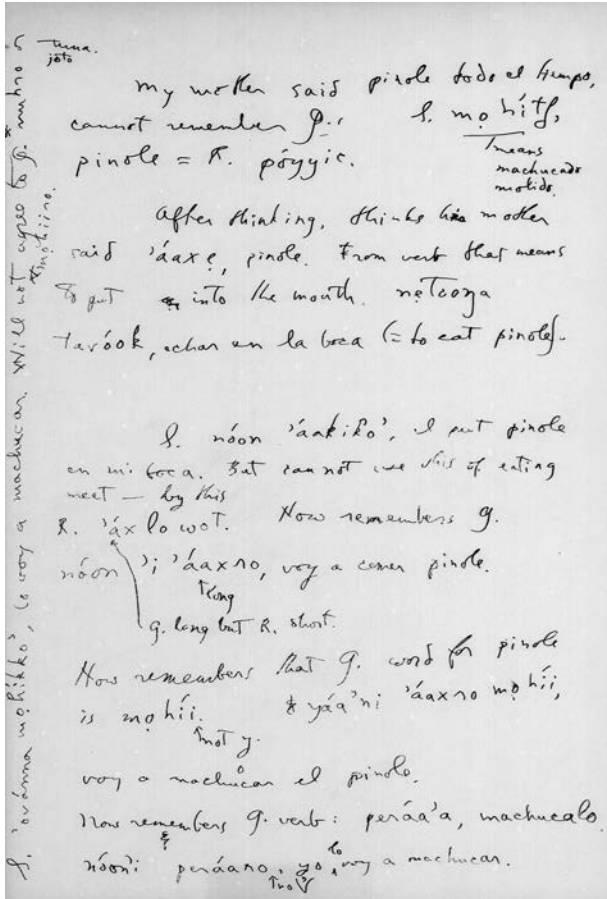 tuna.
joto
My mother said pinole todo el tiempo,
cannot remember J.: S. mọhítʃ,
means
machucado
molido.
pinole = K. póyyic.
After thinking, thinks his mother
said 'áaxẹ, pinole. From verb that means
to put into the mouth. nẹtcoŋa
tavóok, echar en la boca (= to eat pinole).
S. nóon 'áakiko', I put pinole
en mi boca. But can not use this of eating
meat — by this
R. 'áx lo wot. Now remembers J.
nóon 'i 'áaxno, voy a comer pinole.
long
J. long but R. short.
Now remembers that J. word for pinole
is mọhíi. yáa'ni 'áaxno mọhíi,
not y.
voy a machucar el pinole.
Now remembers J. verb: peráa'a, machucalo.
nóon'i peráano, yo lo voy a machucar.
no
S. 'ovánma mọhíkko', lo voy a machucar. Will not agree to J.
mọhíino.